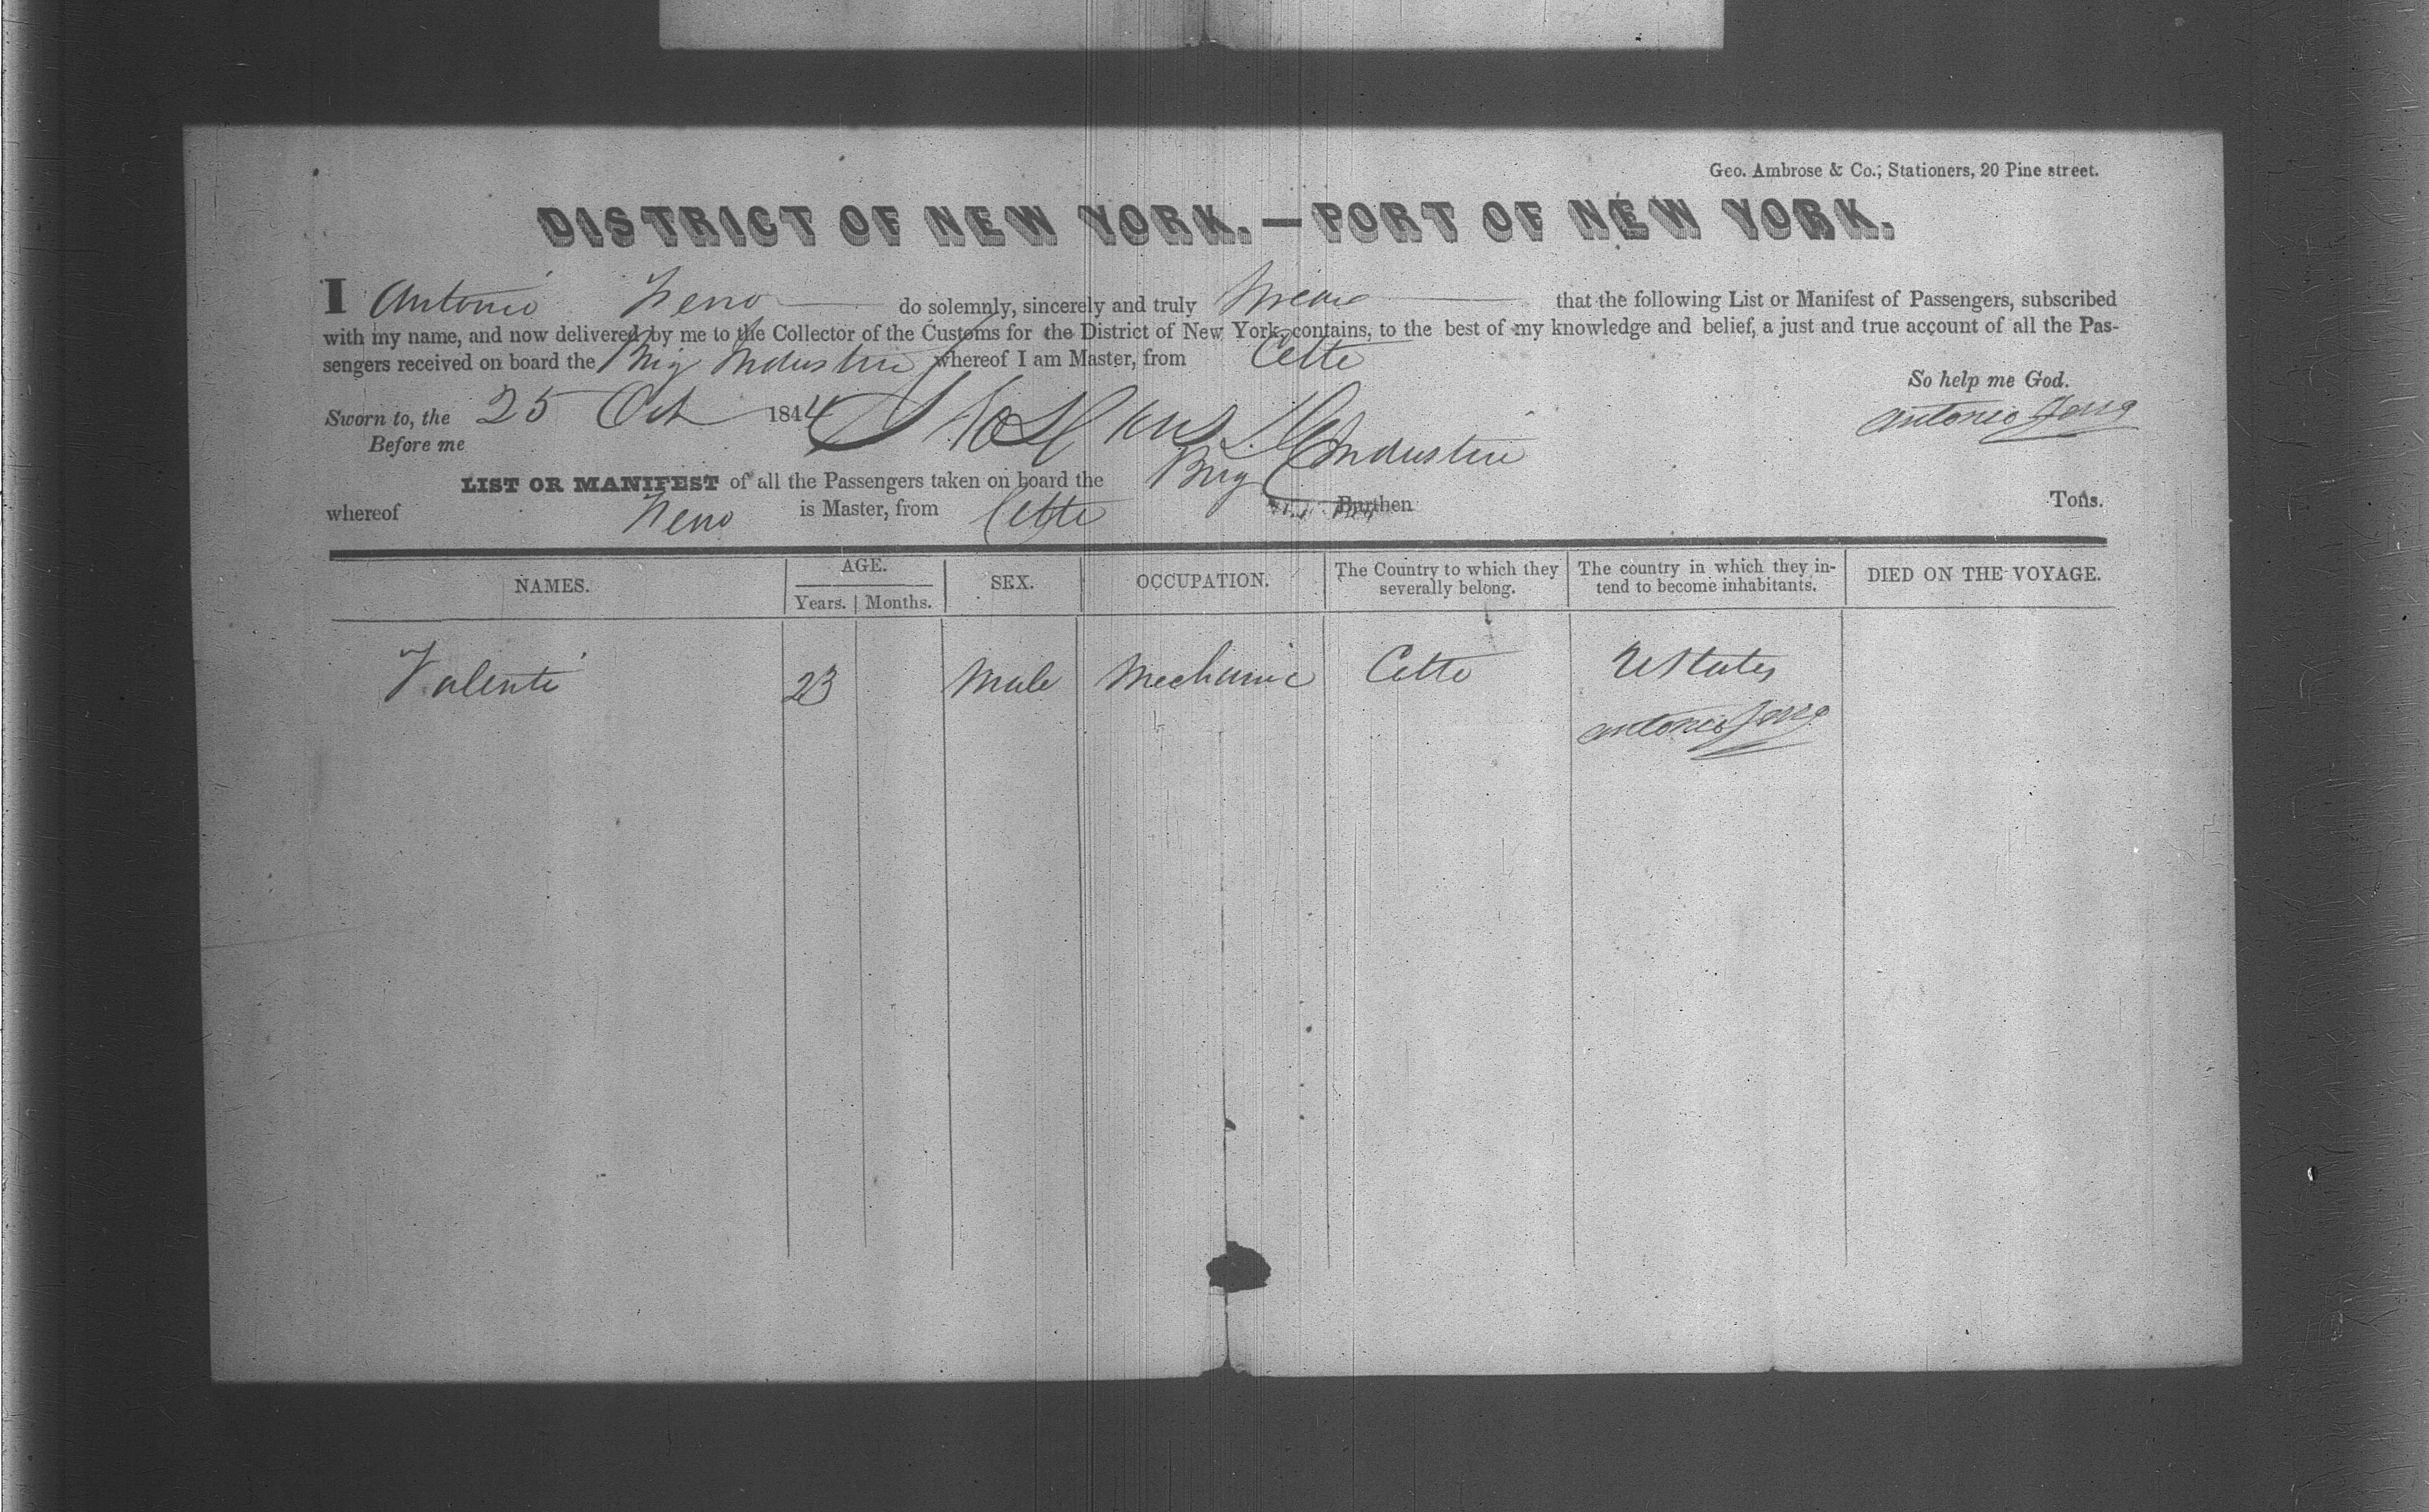 Geo. Ambrose & Co., Stationers, 20 Pine street.
DISTRICT OF NEW YORK.—PORT OF NEW YORK.
I Antonio Zeno do solemnly, sincerely and truly swear that the following List or Manifest of Passengers, subscribed
with my name, and now delivered by me to the Collector of the Customs for the District of New York, contains, to the best of my knowledge and belief, a just and true account of all the Pas-
sengers received on board the Brig Industrie whereof I am Master, from Cette
So help me God.
Sworn to, the 25 Oct 1844
Antonio
Before me
LIST OR MANIFEST of all the Passengers taken on board the Brig Industrie
whereof Zeno is Master, from Cette Burthen Tons.
NAMES. AGE. SEX. OCCUPATION. The Country to which they severally belong. The country in which they in-tend to become inhabitants. DIED ON THE VOYAGE.
Years. Months.
Valenti 23 Male Mechanic Cette UStates
antonio